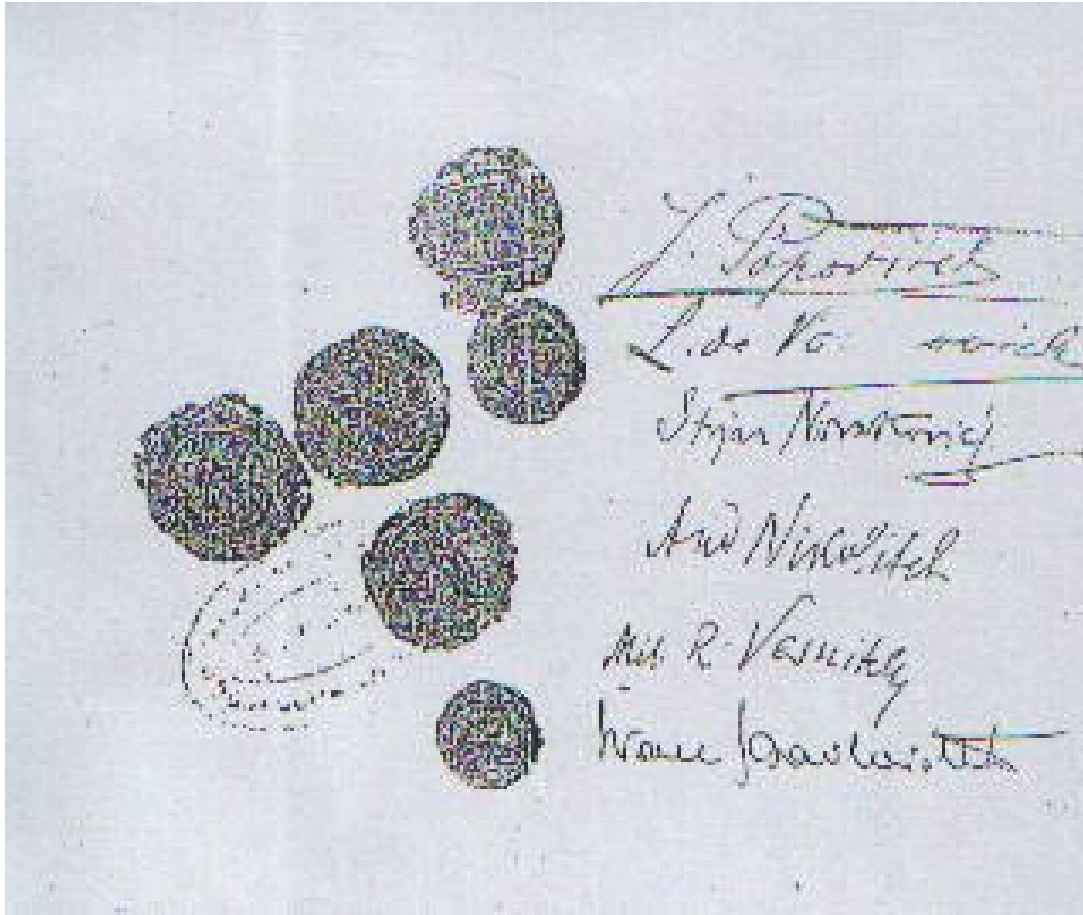 J. Popovitch
L. de Vo
Stojan Novakovitch
And Nikolitch
Mil R. Vesnitch
Ivane Pavlovitch